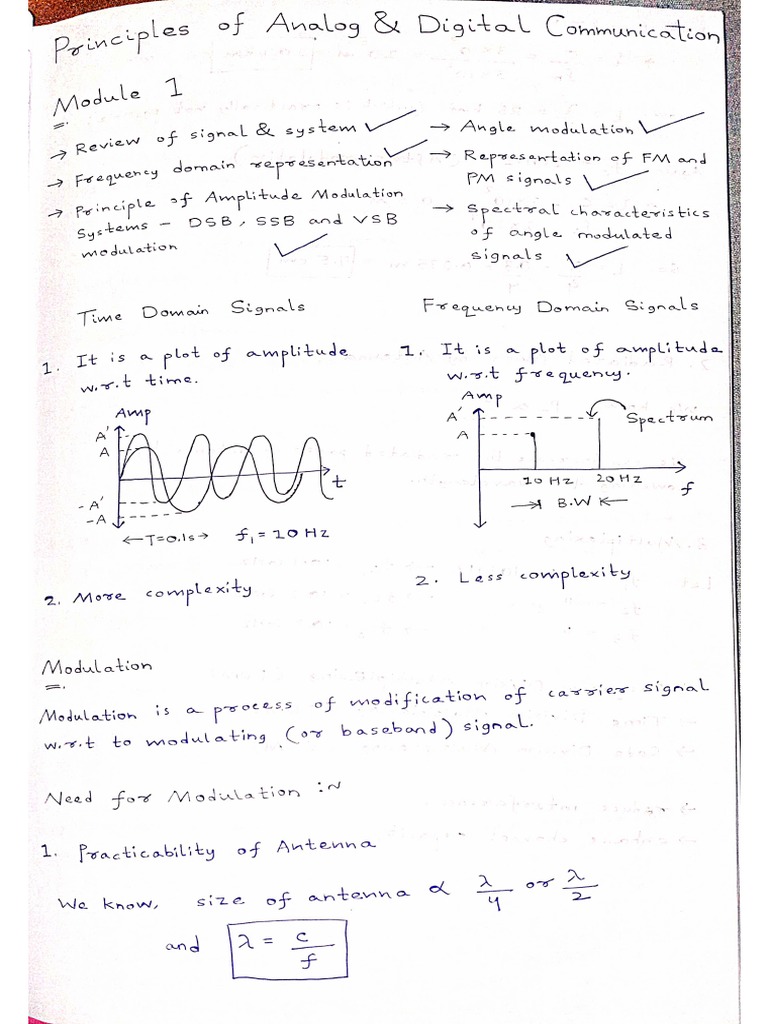 Principles of Analog & Digital Communication
Module 1
→ Review of signal & system ✓
→ Frequency domain representation ✓
→ Principle of Amplitude Modulation
Systems – DSB, SSB and VSB
modulation ✓
→ Angle modulation ✓
→ Representation of FM and
PM signals ✓
→ Spectral characteristics
of angle modulated
signals ✓
Time Domain Signals
1. It is a plot of amplitude
w.r.t time.
Amp
A'
A
-A'
-A
t
←T=0.1s→ f₁ = 10 Hz
2. More complexity
Frequency Domain Signals
1. It is a plot of amplitude
w.r.t frequency.
Amp
A'
A
Spectrum
10 Hz 20 Hz
f
→ B.W ←
2. Less complexity
Modulation
Modulation is a process of modification of carrier signal
w.r.t to modulating (or baseband) signal.
Need for Modulation :~
1. Practicability of Antenna
We know, size of antenna ∝ λ/4 or λ/2
and λ = c/f